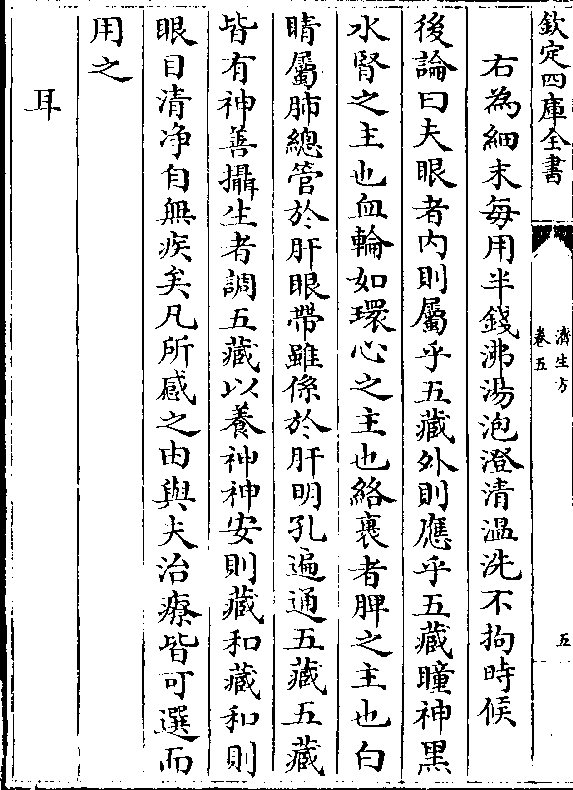 欽定四庫全書
濟生方
卷五
五
右為細末每用半錢沸湯泡澄清温洗不拘時候
後論曰夫眼者内則屬乎五藏外則應乎五藏瞳神黒
水腎之主也血輪如環心之主也絡裹者脾之主也白
睛屬肺總管於肝眼帶雖係於肝明孔遍通五藏五藏
皆有神善攝生者調五藏以養神神安則藏和藏和則
眼目清净自無疾矣凡所感之由與夫治療皆可選而
用之
耳